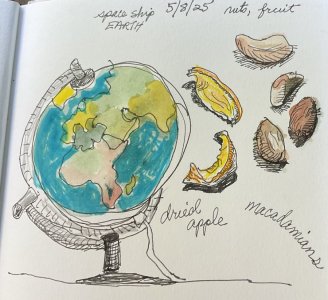 space ship 5/8/25 nuts, fruit
EARTH
dried
apple
macadamians